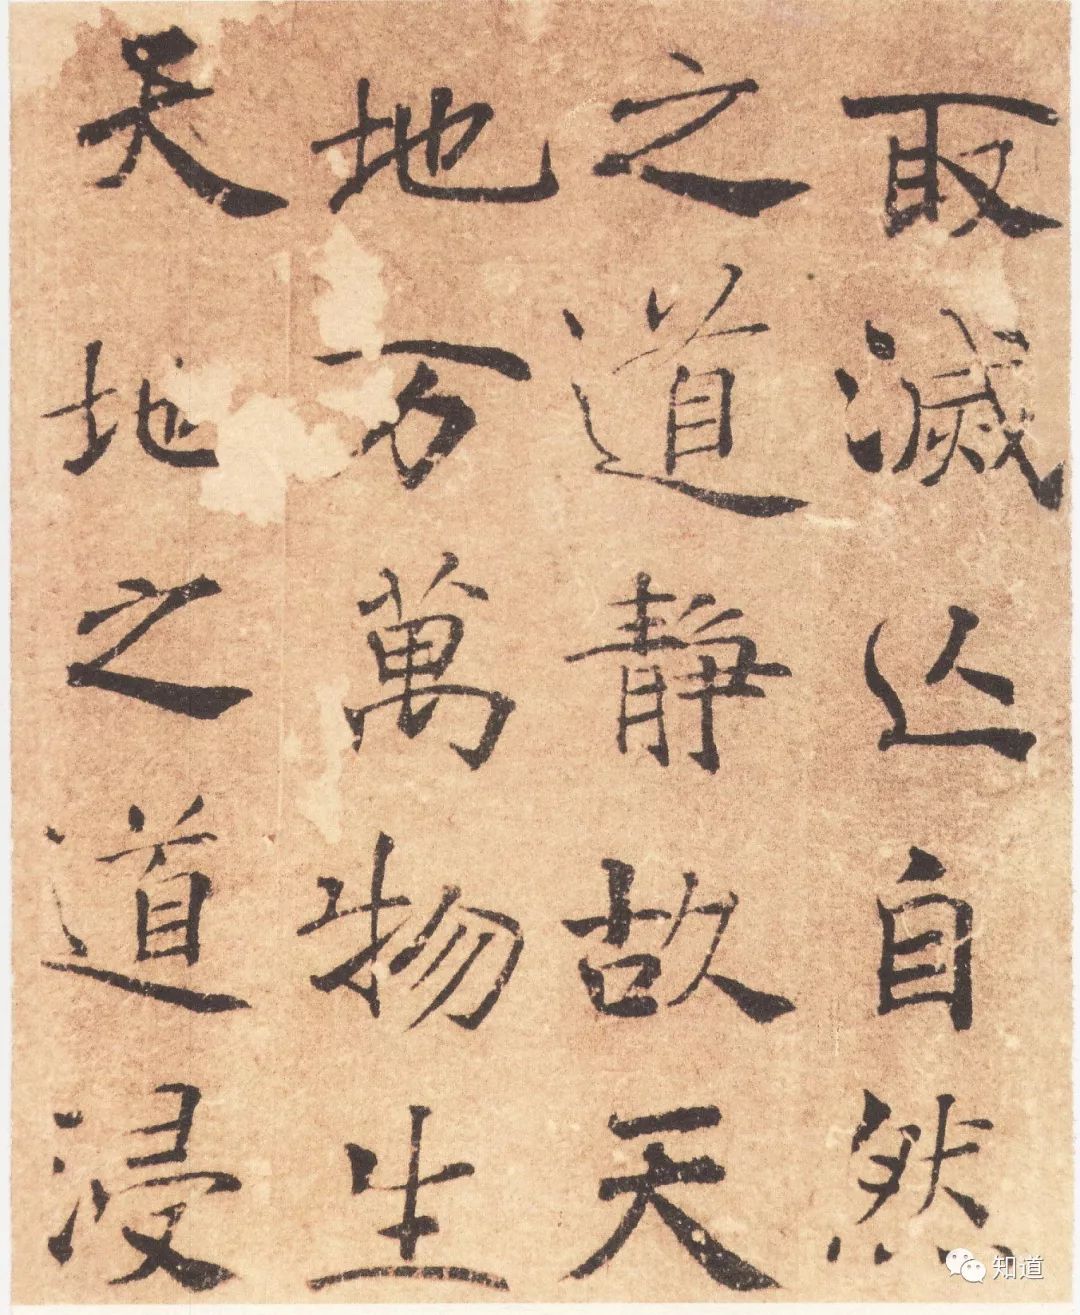 取滅亾自然
之道靜故天
地万萬物生
天地之道浸
知道